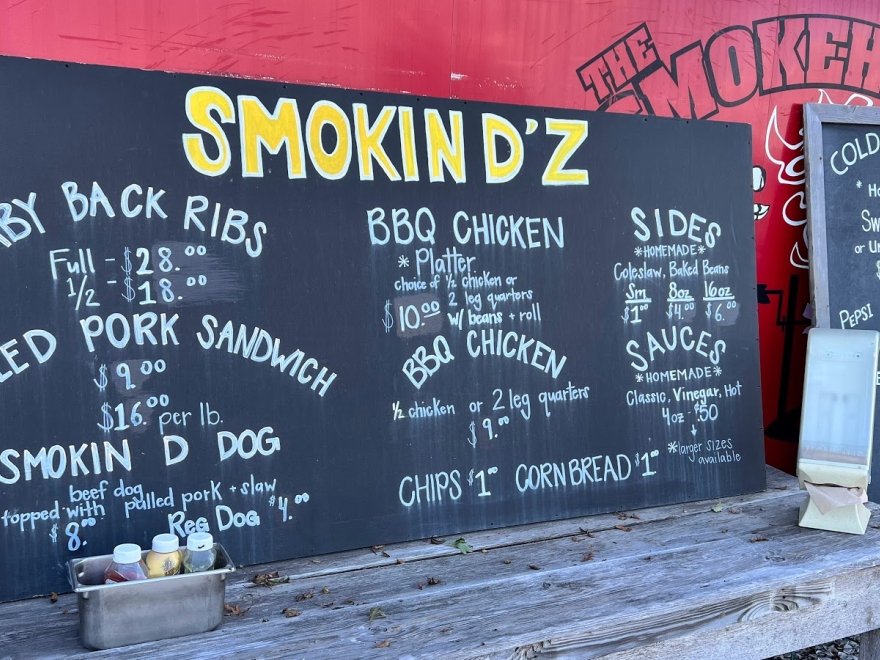 THE
SMOKEH
SMOKIN D'Z
BY BACK RIBS
Full - $28.00
1/2 - $18.00
LED PORK SANDWICH
$9.00
$16.00 per lb.
SMOKIN D DOG
beef dog
topped with pulled pork + slaw
$8.00
Reg Dog $4.00
BBQ CHICKEN
* Platter
choice of 1/2 chicken or
2 leg quarters
$10.00 w/ beans + roll
BBQ CHICKEN
1/2 chicken or 2 leg quarters
$9.00
CHIPS $1.00 CORNBREAD $1.00
SIDES
*HOMEMADE*
Coleslaw, Baked Beans
Sm 8oz 16oz
$1.00 $4.00 $6.00
SAUCES
*HOMEMADE*
Classic, Vinegar, Hot
4oz - $.50
*larger sizes
available
COLD
* Ho
Sw
or Un
$
PEPSI